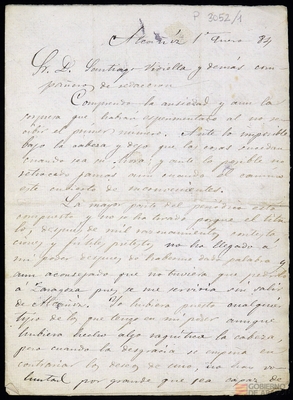 P 3052/1
Alcañiz 1º Enero 84
Sr. D. Santiago Vidiella y demás com
pañeros de redaccion
Comprendo la ansiedad y aun la
que habran esperimentado al no re
cibir el primer número. Ante lo imposible
bajo la cabeza y dejo que las cosas sucedan
cuando sea su hora; y ante lo posible no
retrocedo jamás aun cuando el camino
esté cubierto de inconvenientes.
La mayor parte del periódico está
compuesto y no se ha tirado porque el titu
lo, despues de mil razonamientos, contesta
ciones y fútiles pretestos, no ha llegado á
mi poder despues de haberme dado palabra y
aun aconsejado que no tuviera que pedirlo
á Zaragoza pues se me serviria sin salir
de Alcañiz. Yo hubiera puesto cualquier
tipo de los que tengo en mi poder aunque
hubiera hecho algo raquítica la cabeza
pero cuando la desgracia se empeña en
contrariar los deseos de uno, no hay vo
luntad por grande que sea capaz de
GOBIERNO
DE